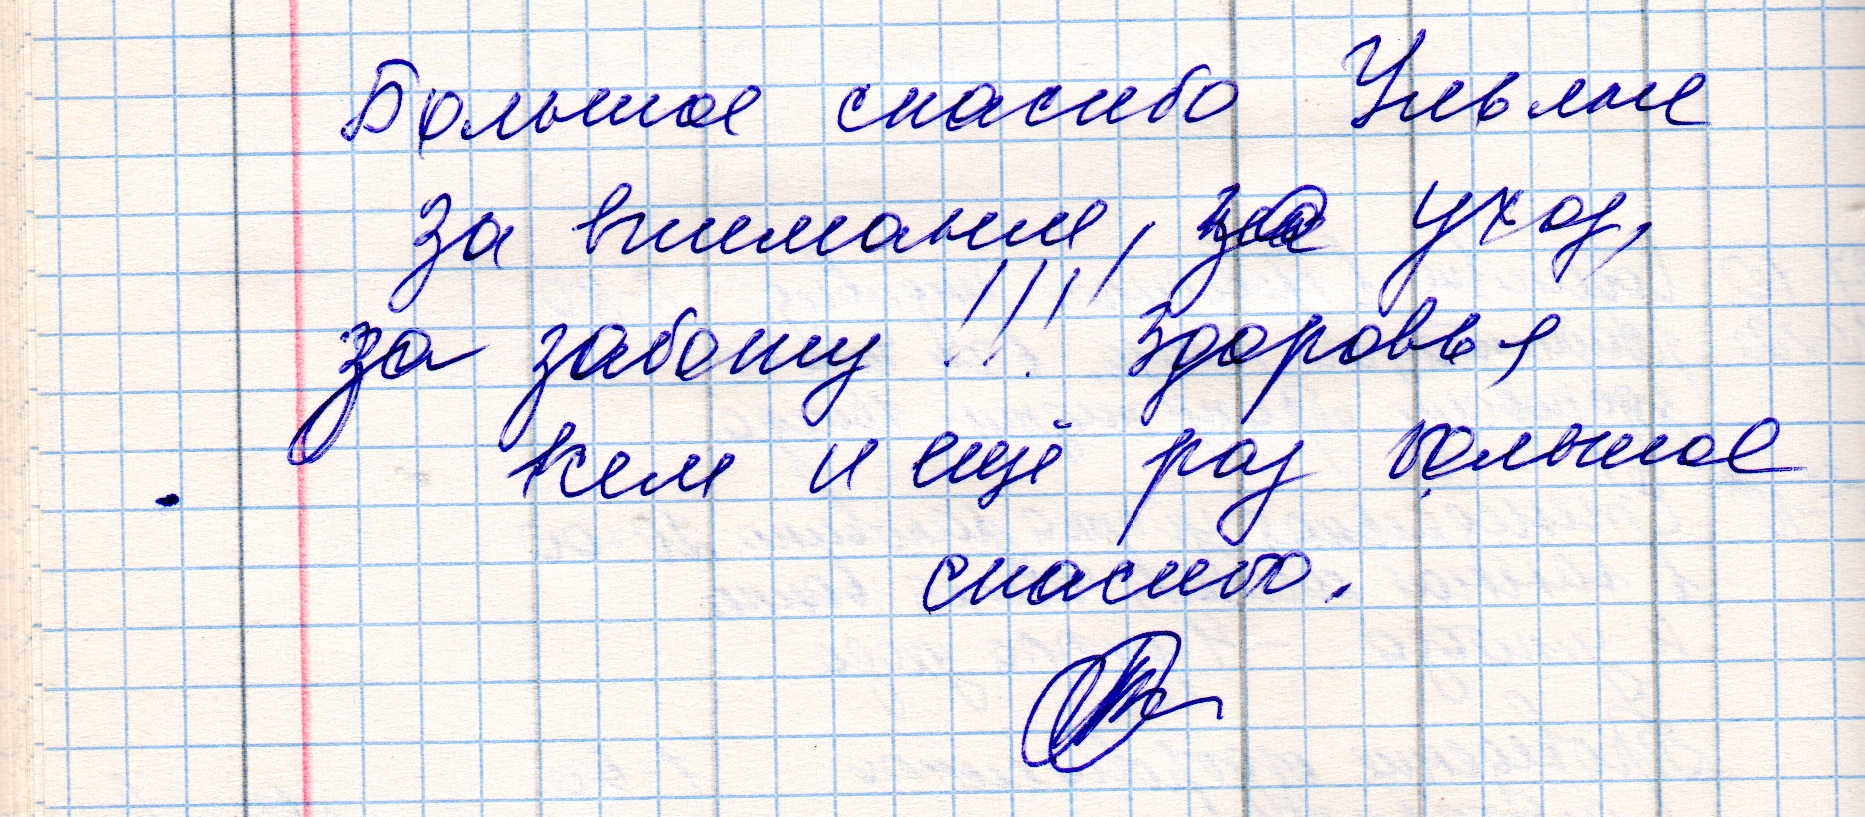 Большое спасибо Ульяне
за внимание, за уход,
за заботу!!! Здоровья
Вам и ещё раз большое
спасибо.